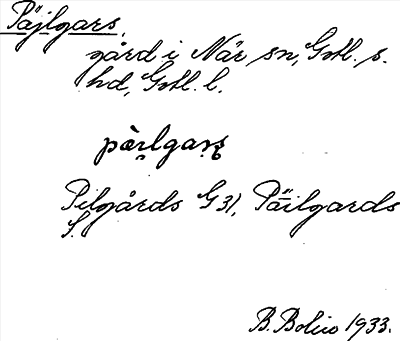 Päjlgars.
gård i När sn, Gotl. s.
hd, Gotl. l.
Pilgårds G 31, Päilgards
S.
B. Bolin 1933.